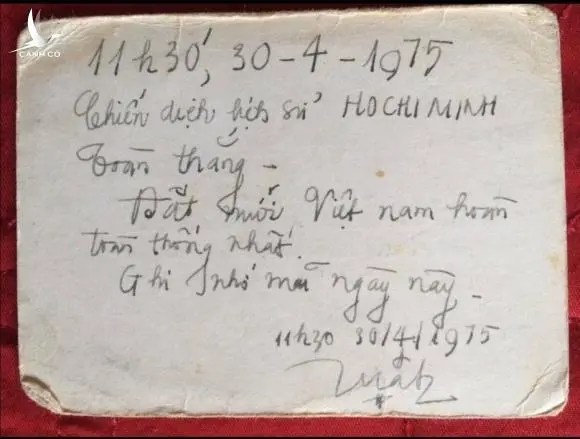 CÁNH CÒ
11h30', 30-4-1975
Chiến dịch lịch sử HOCHIMINH
toàn thắng -
Đất nước Việt nam hoàn
toàn thống nhất.
Ghi nhớ mãi ngày này -
11h30 30/4/1975